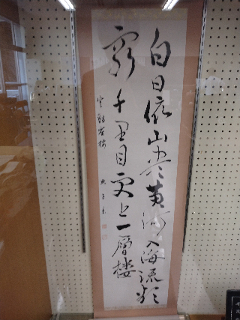 白日依山尽黄河入海流欲
窮千里目更上一層楼